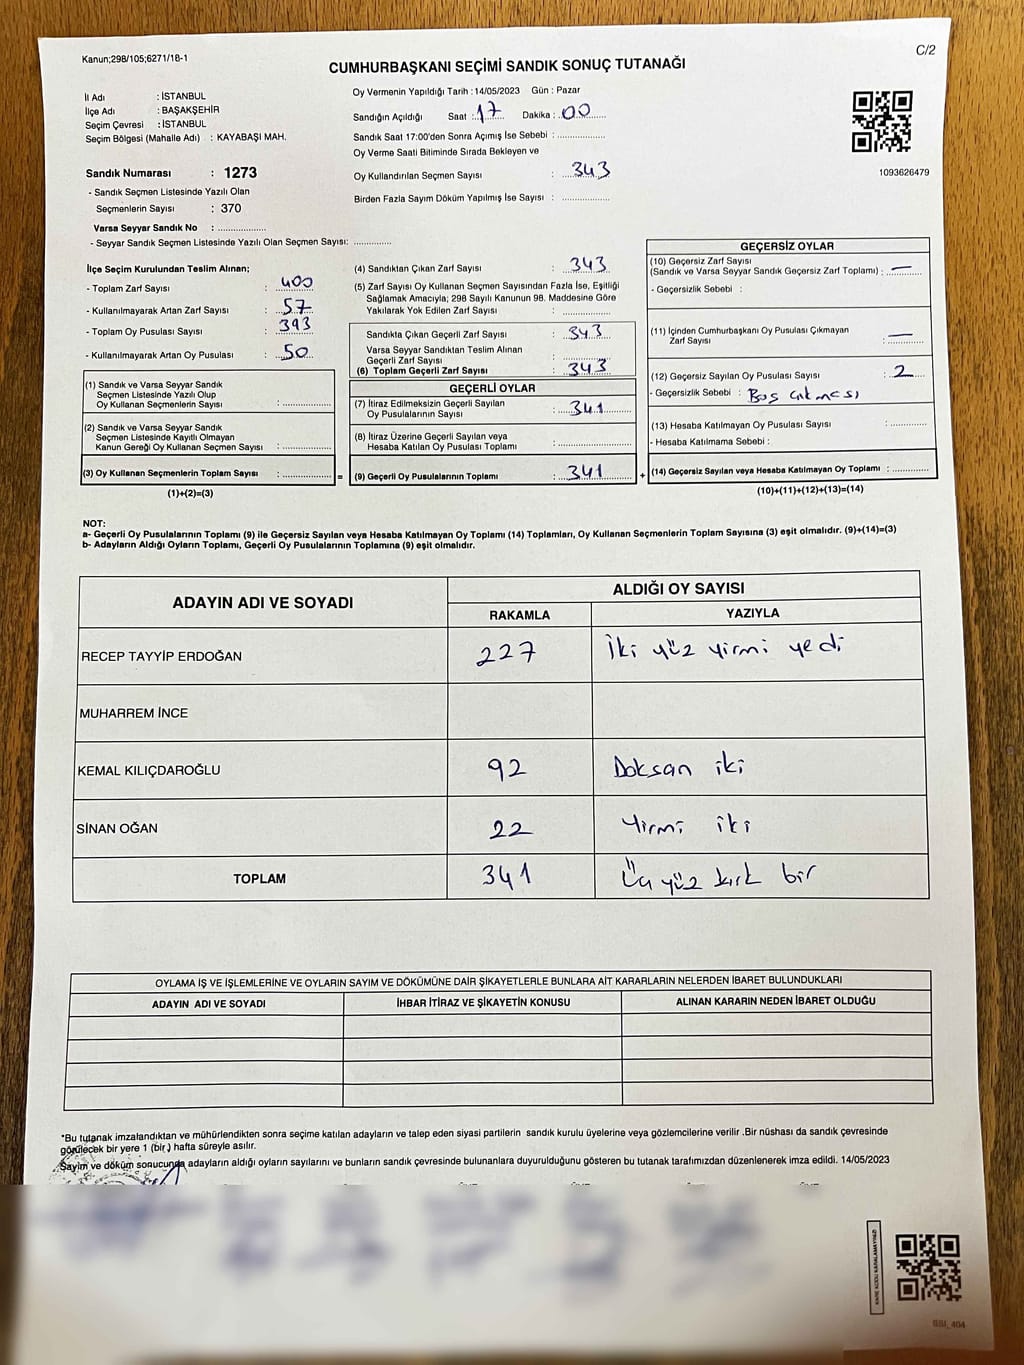 Kanun;298/105;6271/18-1
C/2
CUMHURBAŞKANI SEÇİMİ SANDIK SONUÇ TUTANAĞI
İl Adı : İSTANBUL
İlçe Adı : BAŞAKŞEHİR
Seçim Çevresi : İSTANBUL
Seçim Bölgesi (Mahalle Adı) : KAYABAŞI MAH.
Sandık Numarası : 1273
- Sandık Seçmen Listesinde Yazılı Olan
Seçmenlerin Sayısı : 370
Varsa Seyyar Sandık No : ..................
- Seyyar Sandık Seçmen Listesinde Yazılı Olan Seçmen Sayısı: ..............
Oy Vermenin Yapıldığı Tarih : 14/05/2023 Gün : Pazar
Sandığın Açıldığı Saat : 17 Dakika : 00
Sandık Saat 17:00'den Sonra Açımış İse Sebebi : ..................
Oy Verme Saati Bitiminde Sırada Bekleyen ve
Oy Kullandırılan Seçmen Sayısı : 343
Birden Fazla Sayım Döküm Yapılmış İse Sayısı : ..................
1093626479
İlçe Seçim Kurulundan Teslim Alınan;
- Toplam Zarf Sayısı : 400
- Kullanılmayarak Artan Zarf Sayısı : 57
- Toplam Oy Pusulası Sayısı : 393
- Kullanılmayarak Artan Oy Pusulası : 50
(1) Sandık ve Varsa Seyyar Sandık
Seçmen Listesinde Yazılı Olup
Oy Kullanan Seçmenlerin Sayısı : ..................
(2) Sandık ve Varsa Seyyar Sandık
Seçmen Listesinde Kayıtlı Olmayan
Kanun Gereği Oy Kullanan Seçmen Sayısı : ..................
(3) Oy Kullanan Seçmenlerin Toplam Sayısı : .................. =
(1)+(2)=(3)
(4) Sandıktan Çıkan Zarf Sayısı : 343
(5) Zarf Sayısı Oy Kullanan Seçmen Sayısından Fazla İse, Eşitliği
Sağlamak Amacıyla; 298 Sayılı Kanunun 98. Maddesine Göre
Yakılarak Yok Edilen Zarf Sayısı : ..................
Sandıkta Çıkan Geçerli Zarf Sayısı : 343
Varsa Seyyar Sandıktan Teslim Alınan
Geçerli Zarf Sayısı : ..................
(6) Toplam Geçerli Zarf Sayısı : 343
GEÇERLİ OYLAR
(7) İtiraz Edilmeksizin Geçerli Sayılan
Oy Pusulalarının Sayısı : 341
(8) İtiraz Üzerine Geçerli Sayılan veya
Hesaba Katılan Oy Pusulası Toplamı : ..................
(9) Geçerli Oy Pusulalarının Toplamı : 341 +
GEÇERSİZ OYLAR
(10) Geçersiz Zarf Sayısı
(Sandık ve Varsa Seyyar Sandık Geçersiz Zarf Toplamı) : —
- Geçersizlik Sebebi :
(11) İçinden Cumhurbaşkanı Oy Pusulası Çıkmayan
Zarf Sayısı : —
(12) Geçersiz Sayılan Oy Pusulası Sayısı : 2
- Geçersizlik Sebebi : Boş çıkması
(13) Hesaba Katılmayan Oy Pusulası Sayısı : ..................
- Hesaba Katılmama Sebebi :
(14) Geçersiz Sayılan veya Hesaba Katılmayan Oy Toplamı : ..............
(10)+(11)+(12)+(13)=(14)
NOT:
a- Geçerli Oy Pusulalarının Toplamı (9) ile Geçersiz Sayılan veya Hesaba Katılmayan Oy Toplamı (14) Toplamları, Oy Kullanan Seçmenlerin Toplam Sayısına (3) eşit olmalıdır. (9)+(14)=(3)
b- Adayların Aldığı Oyların Toplamı, Geçerli Oy Pusulalarının Toplamına (9) eşit olmalıdır.
ADAYIN ADI VE SOYADI
ALDIĞI OY SAYISI
RAKAMLA YAZIYLA
RECEP TAYYİP ERDOĞAN 227 İki yüz yirmi yedi
MUHARREM İNCE
KEMAL KILIÇDAROĞLU 92 Doksan iki
SİNAN OĞAN 22 Yirmi iki
TOPLAM 341 Üç yüz kırk bir
OYLAMA İŞ VE İŞLEMLERİNE VE OYLARIN SAYIM VE DÖKÜMÜNE DAİR ŞİKAYETLERLE BUNLARA AİT KARARLARIN NELERDEN İBARET BULUNDUKLARI
ADAYIN ADI VE SOYADI İHBAR İTİRAZ VE ŞİKAYETİN KONUSU ALINAN KARARIN NEDEN İBARET OLDUĞU
*Bu tutanak imzalandıktan ve mühürlendikten sonra seçime katılan adayların ve talep eden siyasi partilerin sandık kurulu üyelerine veya gözlemcilerine verilir .Bir nüshası da sandık çevresinde
görülecek bir yere 1 (bir ) hafta süreyle asılır.
Sayım ve döküm sonucunda adayların aldığı oyların sayılarını ve bunların sandık çevresinde bulunanlara duyurulduğunu gösteren bu tutanak tarafımızdan düzenlenerek imza edildi. 14/05/2023
KARE KODU KARALAMAYINIZ!